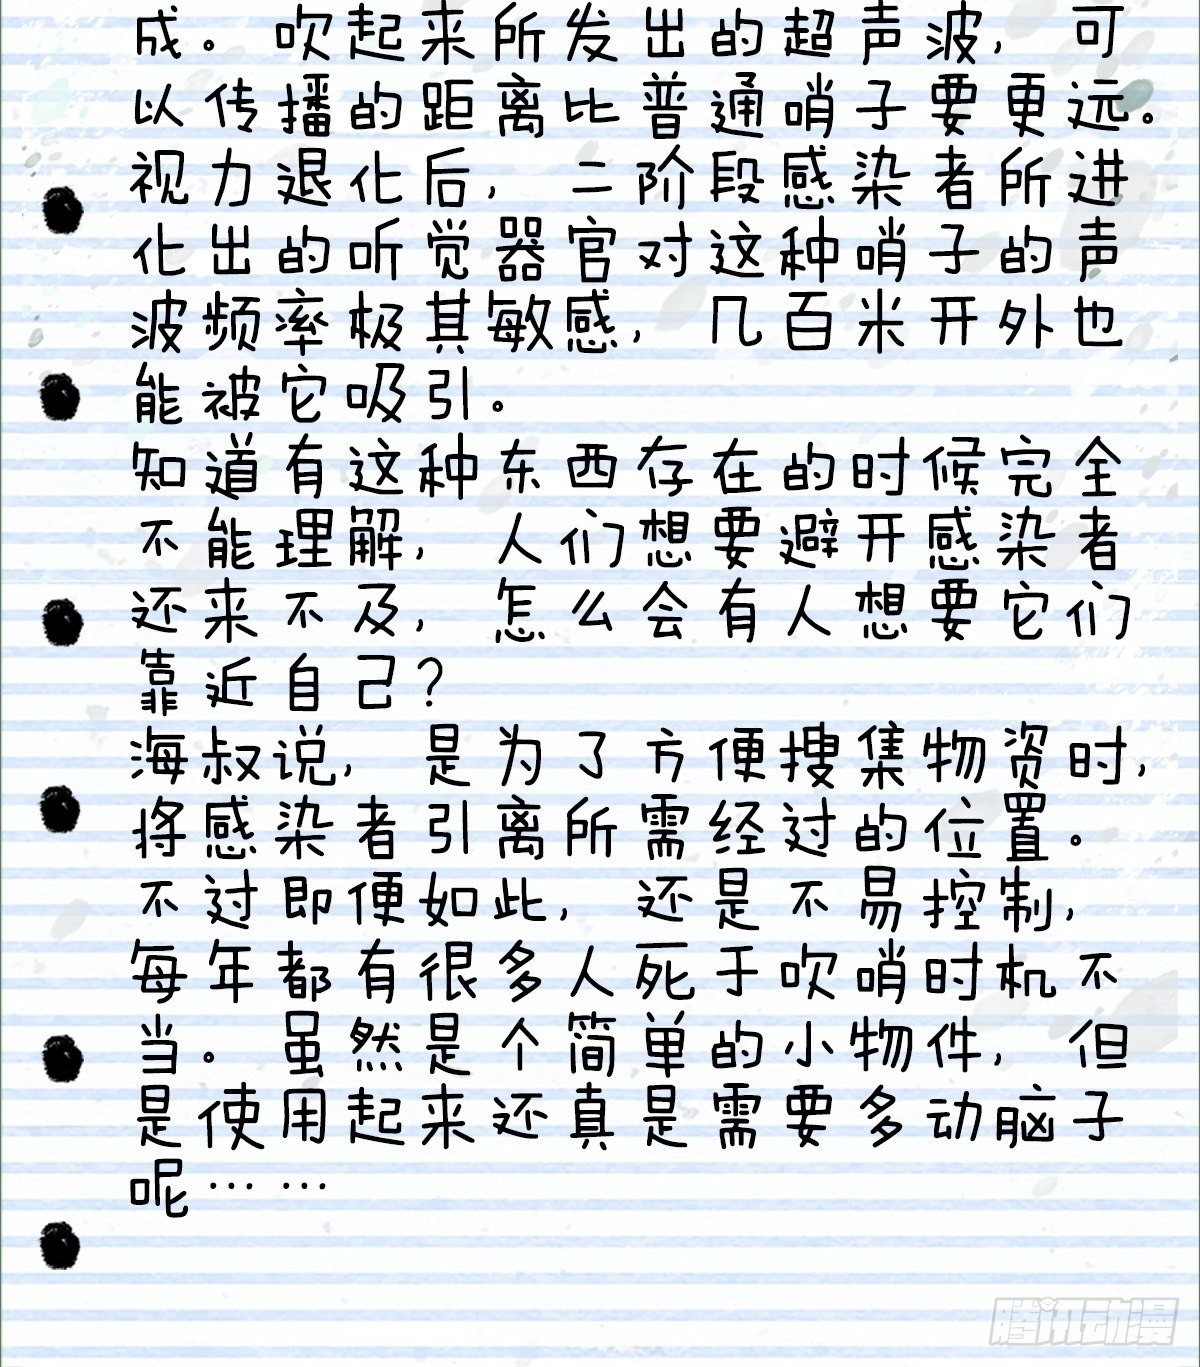 成。吹起来所发出的超声波，可
以传播的距离比普通哨子要更远。
视力退化后，二阶段感染者所进
化出的听觉器官对这种哨子的声
波频率极其敏感，几百米开外也
能被它吸引。
知道有这种东西存在的时候完全
不能理解，人们想要避开感染者
还来不及，怎么会有人想要它们
靠近自己？
海叔说，是为了方便搜集物资时，
将感染者引离所需经过的位置。
不过即便如此，还是不易控制，
每年都有很多人死于吹哨时机不
当。虽然是个简单的小物件，但
是使用起来还真是需要多动脑子
呢……
腾讯动漫